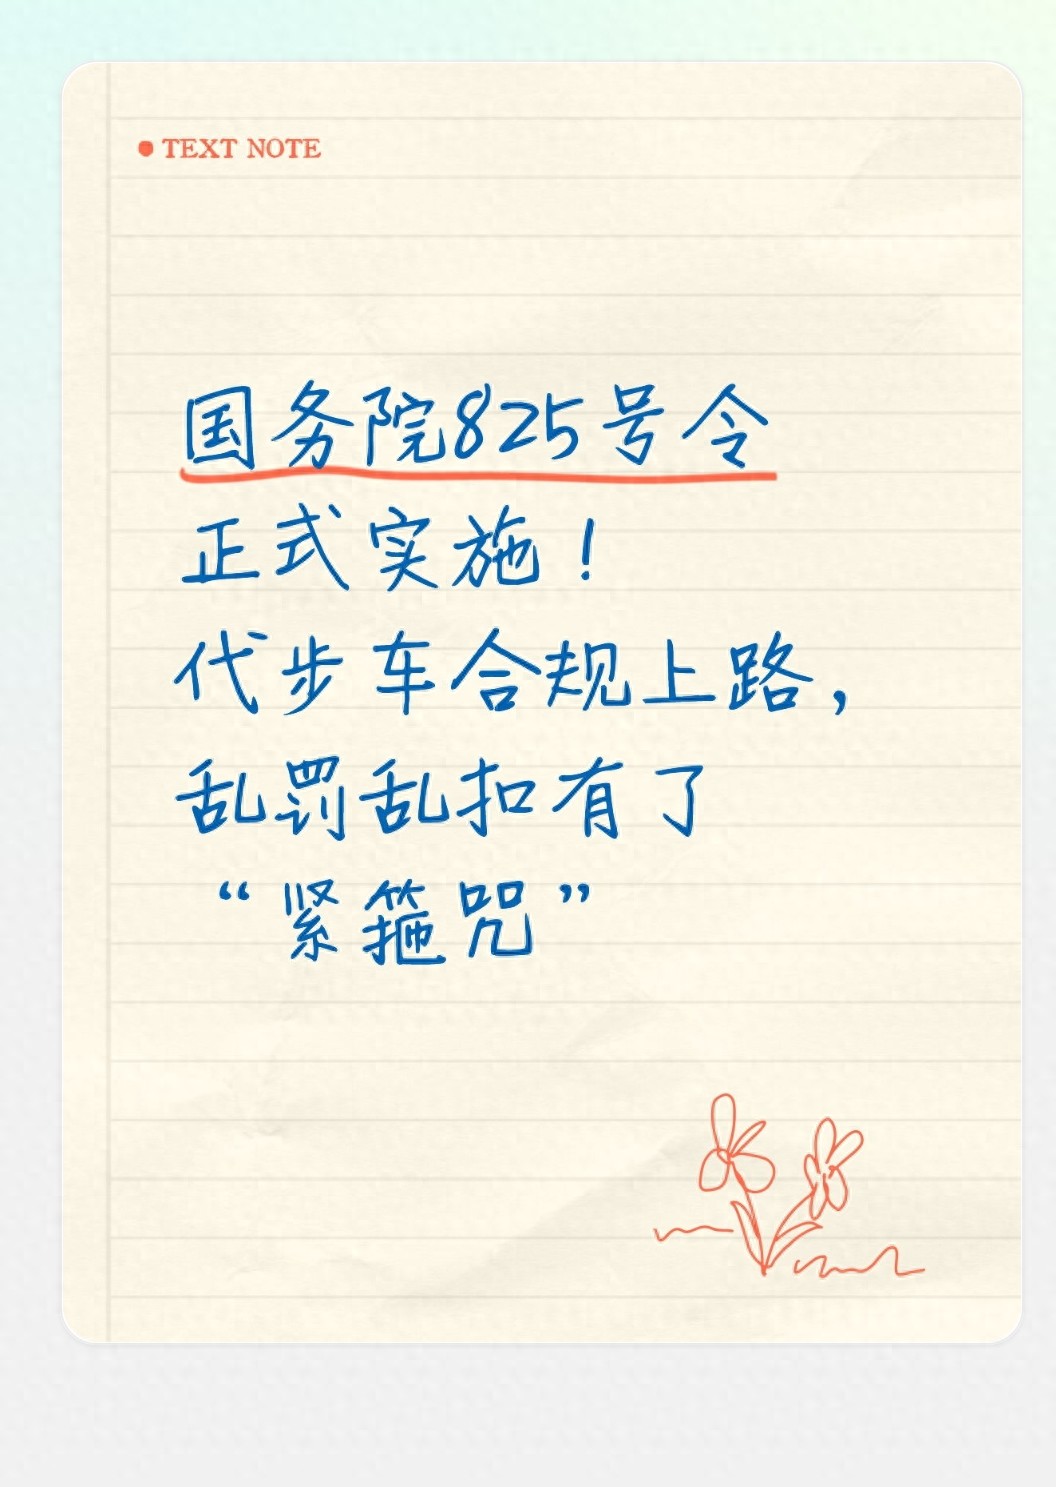 TEXT NOTE
国务院825号令
正式实施！
代步车合规上路，
乱罚乱扣有了
“紧箍咒”